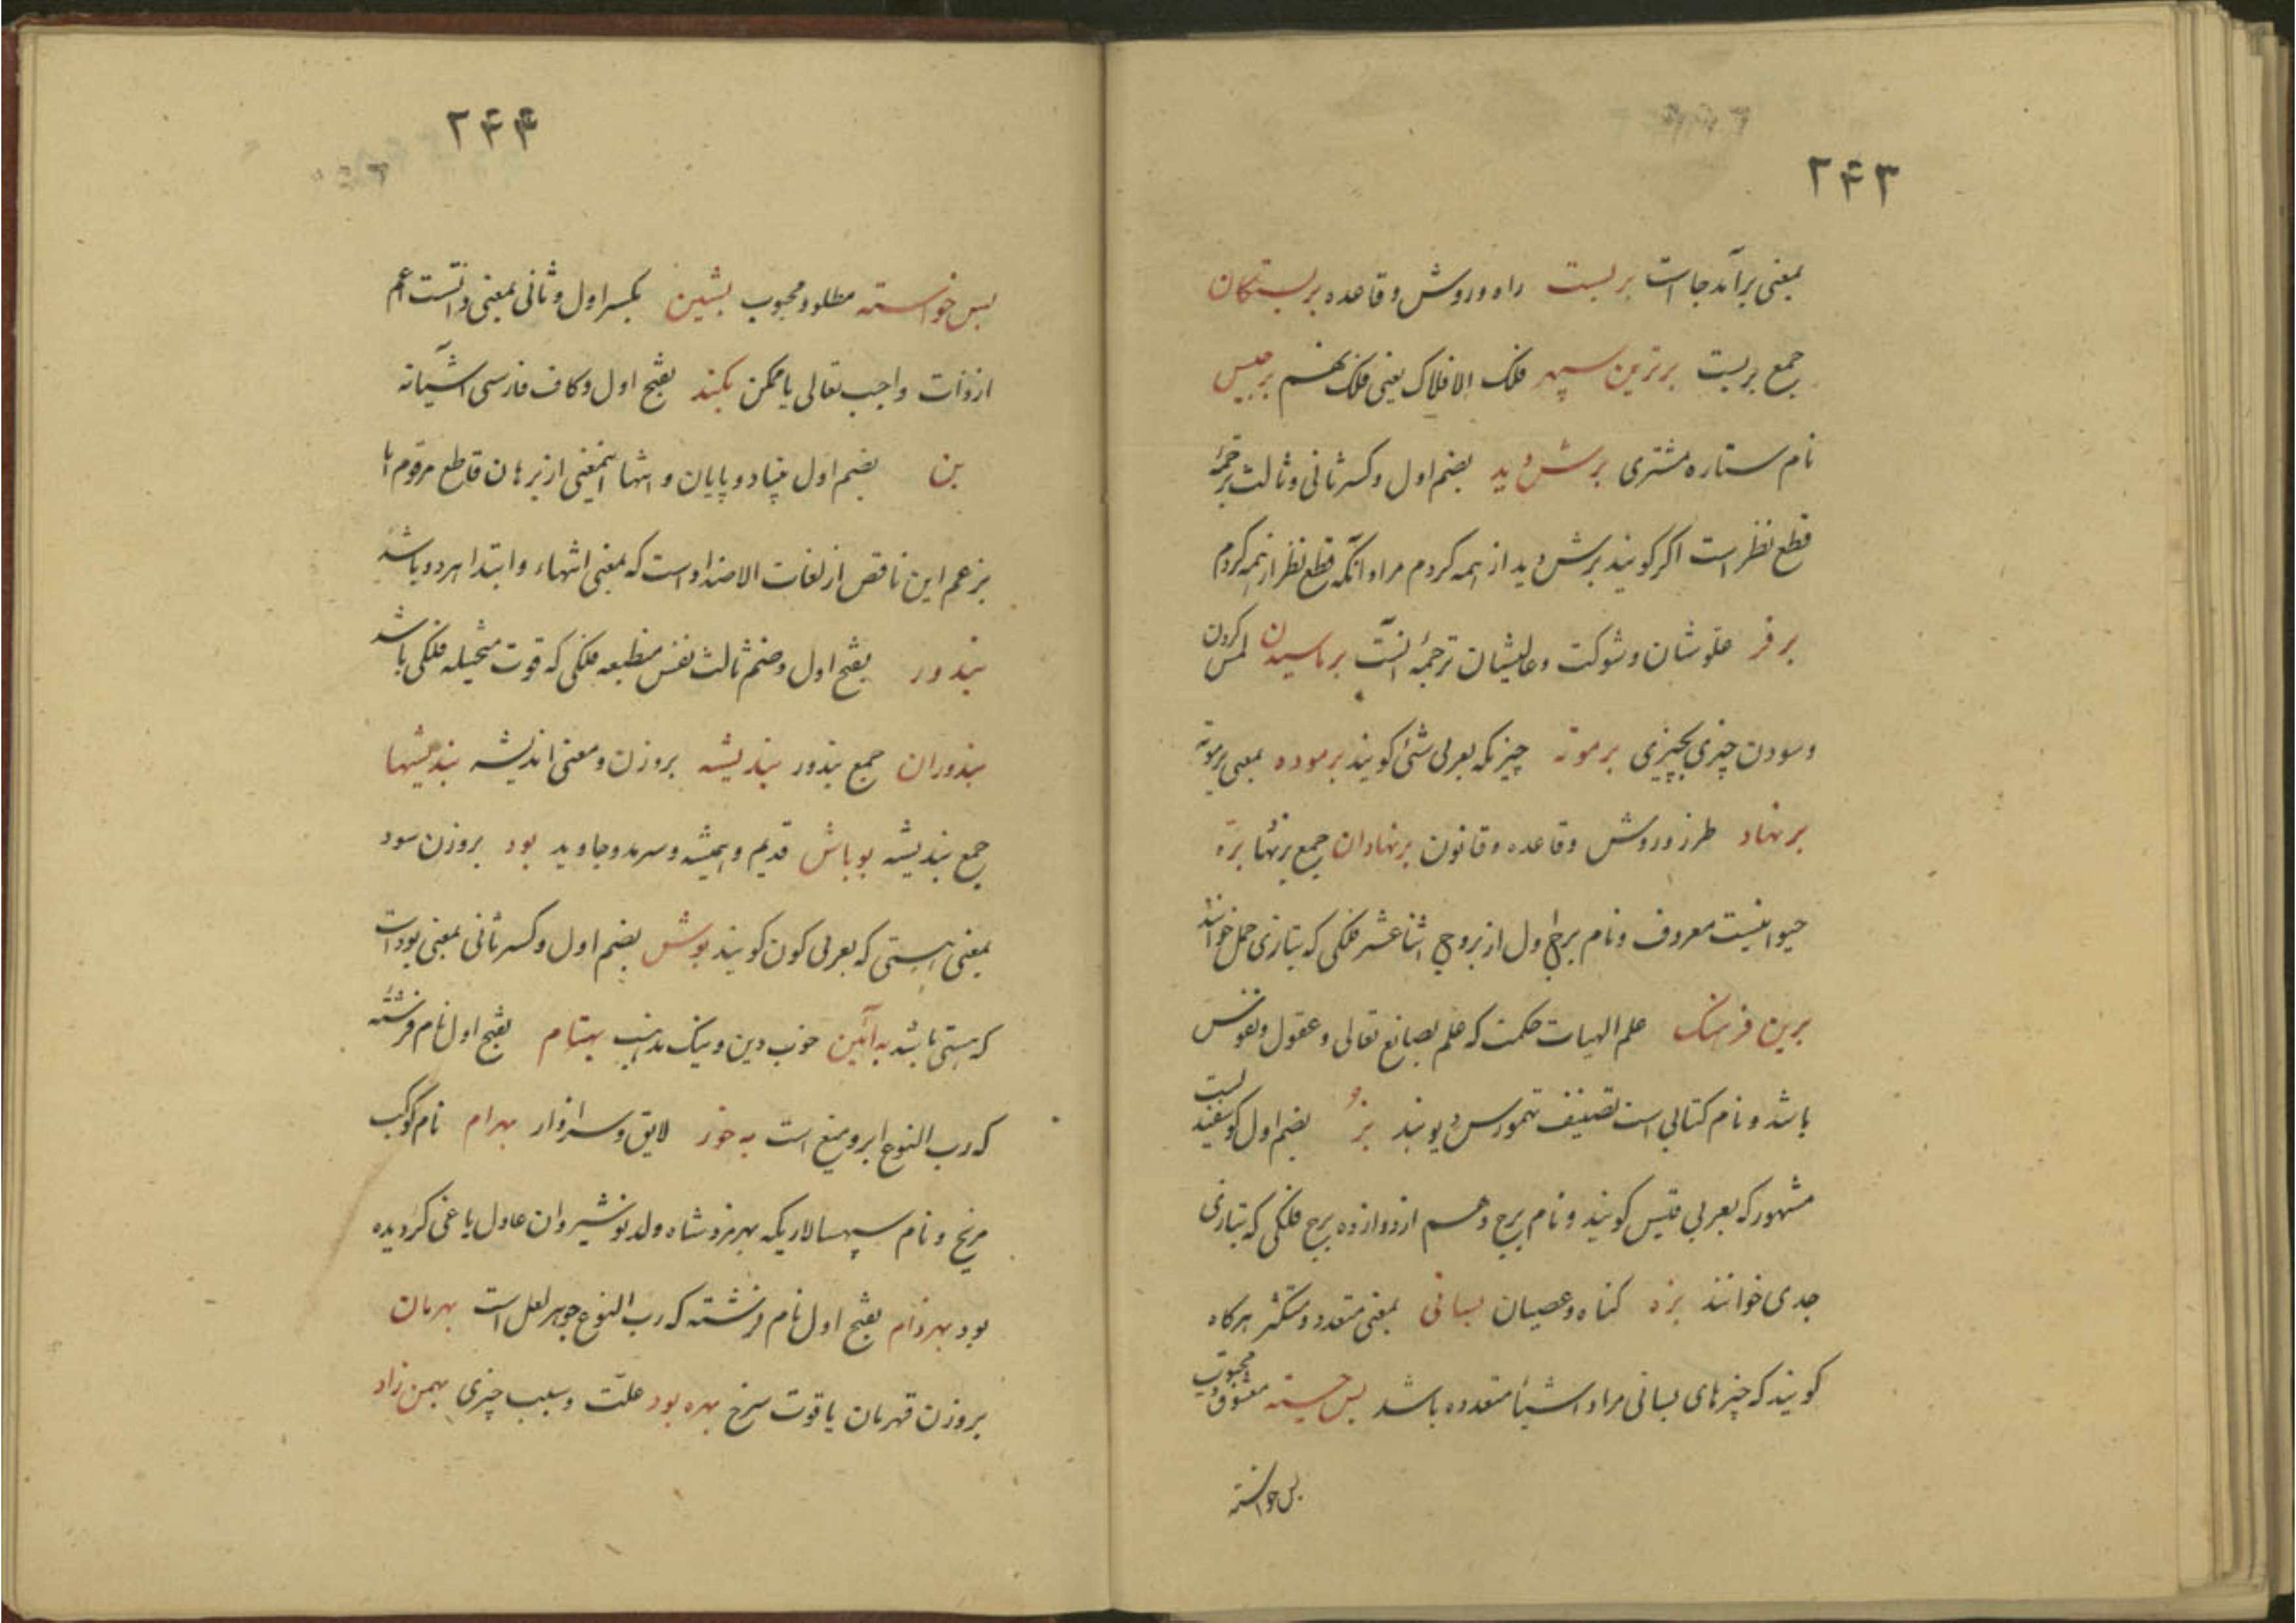 ۲۴۳
بمعنی برآمدجا است بربست راه وروش وقاعده بربستکان
جمع بربست برترین سپهر فلک الافلاک یعنی فلک نهم برجیس
نام ستاره مشتری برش دید بضم اول وکسر ثانی وثالث ترجمهٔ
قطع نظر است اکر کویند برش دید از همه کردم مراد آنکه قطع نظر از همه کردم
برفر علوشان وشوکت وعالیشان ترجمهٔ آنست برماسیدن لمس کردن
وسودن چیزی بچیزی برموته چیزیکه بعربی شئ کویند برموده بمعنی برموته
برنهاد طرز وروش وقاعده وقانون برنهادان جمع برنهاد بره
حیوانیست معروف ونام برج اول از بروج اثناعشر فلکی که بتازی حمل خوانند
برین فرهنک علم الهیات حکمت که علم بصانع تعالی وعقول ونفوس
باشد ونام کتابی است تصنیف تهمورس دیوبند بز بضم اول کوسفندیست
مشهور که بعربی قیس کویند ونام برج دهم از دوازده برج فلکی که بتازی
جدی خوانند بزه کناه وعصیان بسانی بمعنی متعدد ومتکثر هرکاه
کویند که چیزهای بسانی مراد اشیأ متعدده باشد بس جسته معشوق ومحبوب
بس خواسته
۲۴۴
بس خواسته مطلوب ومحبوب بشین بکسر اول وثانی بمعنی ذاتست اعم
از ذات واجب تعالی یا ممکن بکند بفتح اول وکاف فارسی آشیانه
بن بضم اول بنیاد وپایان وانتها اینمعنی از برهان قاطع مرقوم اما
بزعم این ناقص از لغات الاضداد است که بمعنی انتهاء وابتدا هردو باشد
بندور بفتح اول وضم ثالث نفس منطبعه فلکی که قوت متخیله فلکی باشد
بندوران جمع بندور بندیشه بروزن ومعنی اندیشه بندیشها
جمع بندیشه بوباش قدیم وهمیشه وسرمد وجاوید بود بروزن سود
بمعنی هستی که بعربی کون کویند بوش بضم اول وکسر ثانی بمعنی بود است
که هستی باشد به آئین خوب دین ونیک مذهب بهتام بفتح اول نام فرشتهٔ
که رب النوع ابر ومیغ است به خور لایق وسزاوار بهرام نام کوکب
مریخ ونام سپهسالاریکه بهرمزد شاه ولد نوشیروان عادل یاغی کردیده
بود بهرزام بفتح اول نام فرشته که رب النوع جوهر لعل است بهرمان
بروزن قهرمان یاقوت سرخ بهره بود علت وسبب چیزی بهمن زاد